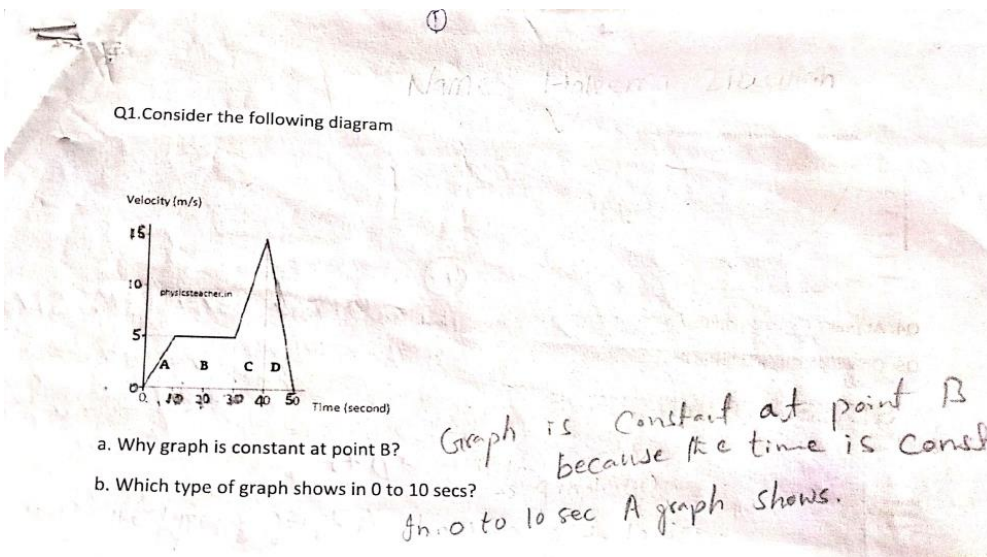 1
Name
Q1.Consider the following diagram
Velocity (m/s)
15
10
physicsteacher.in
5
A B C D
0
0. 10 20 30 40 50
Time (second)
a. Why graph is constant at point B?
Graph is Constant at point B
because the time is Const
b. Which type of graph shows in 0 to 10 secs?
In 0 to 10 sec A graph shows.